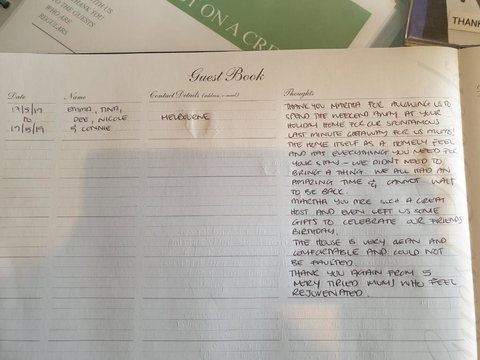 THANK YOU
WHO ARE
REGULARS
T ON A CRE
THANK
Guest Book
Date Name Contact Details (address, e-mail) Thoughts
17/5/19 EMMA, TINA, MELBOURNE
TO DEE, NICOLE
19/5/19 & CONNIE
THANK YOU MARTHA FOR ALLOWING US TO
SPEND THE WEEKEND AWAY AT YOUR
HOLIDAY HOME FOR OUR SPONTANEOUS
LAST MINUTE GETAWAY FOR US MUMS!
THE HOME ITSELF AS A HOMELY FEEL
AND HAS EVERYTHING YOU NEED FOR
YOUR STAY - WE DIDN'T NEED TO
BRING A THING. WE ALL HAD AN
AMAZING TIME & CANNOT WAIT
TO BE BACK.
MARTHA YOU ARE SUCH A GREAT
HOST AND EVEN LEFT US SOME
GIFTS TO CELEBRATE OUR FRIENDS
BIRTHDAY.
THE HOUSE IS VERY CLEAN AND
COMFORTABLE AND COULD NOT
BE FAULTED.
THANK YOU AGAIN FROM 5
VERY TIRED MUMS WHO FEEL
REJUVENATED.